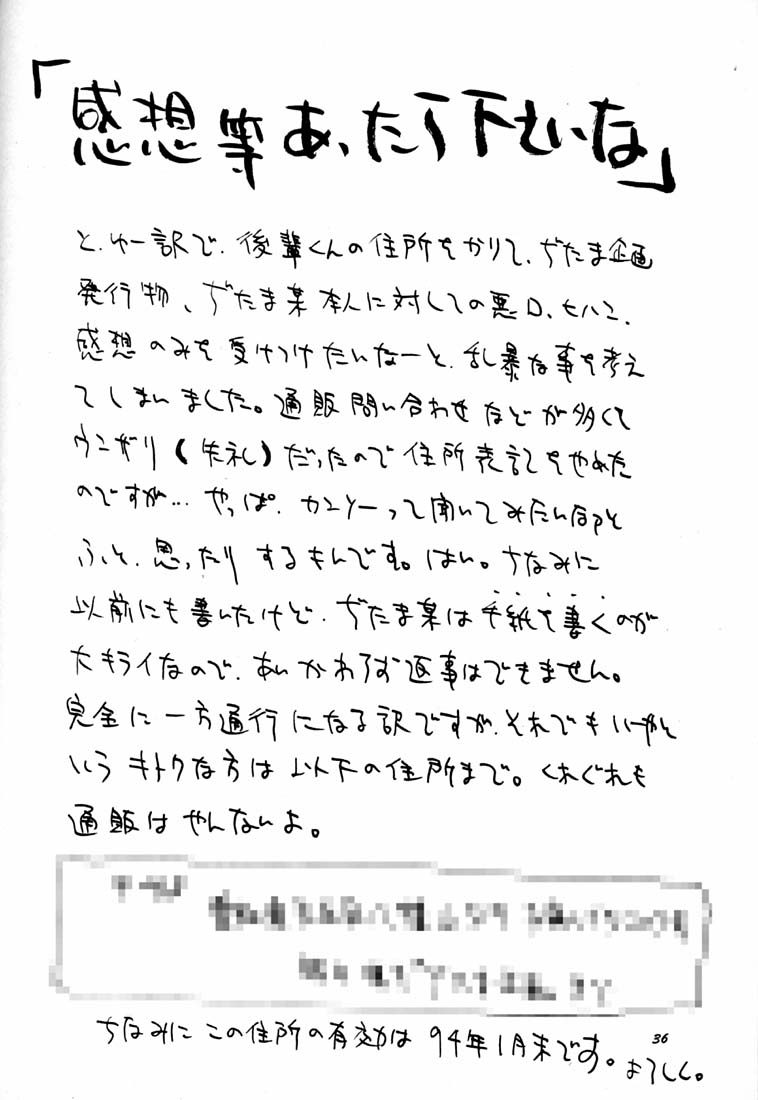 「感想等あったら下せいな」
と、ゆー訳で、後輩くんの住所をかりて、ぢたま企画
発行物、ぢたま某本人に対しての悪口、ヒハン、
感想のみを受けつけたいなーと、乱暴な事を考え
てしまいました。通販問い合わせなどが多くて
ウンザリ(失礼)だったので住所表記をやめた
のですが… やっぱ、カンソーって聞いてみたい
ふっと、思ったりするもんです。はい。ちなみに
以前にも書いたけど、ぢたま某は手紙を書くのが
大キライなので、あいかわらず返事はできません。
完全に一方通行になる訳ですが、それでもいーやと
いうキトクな方は以下の住所まで。くれぐれも
通販はやんないよ。
ちなみにこの住所の有効は94年1月末です。よろしく。
36